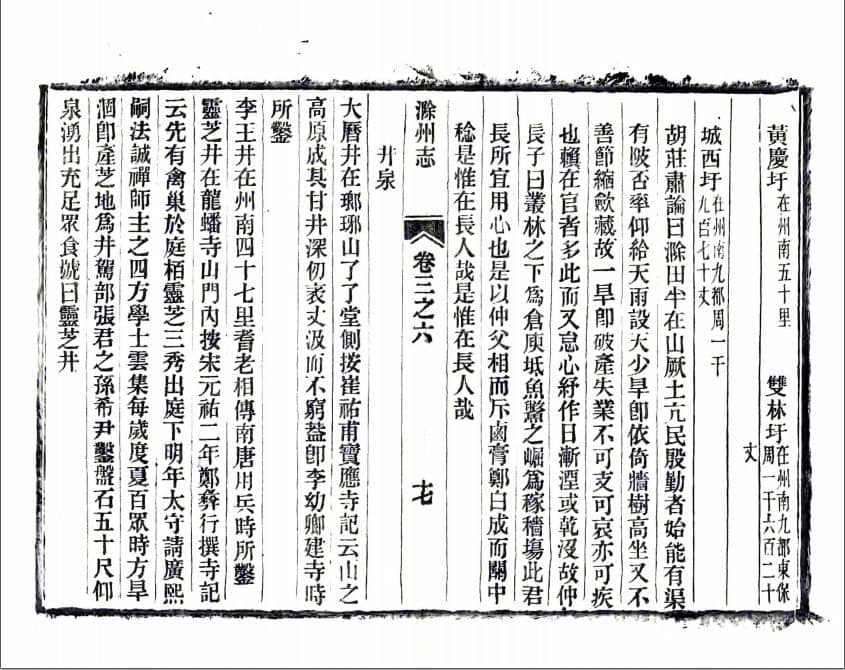 黃慶圩在州南五十里 雙林圩在州南九都東保周一千六百二十丈
城西圩在州南九都周一千九百七十丈
胡莊肅論曰滁田半在山厥土亢民殷勤者始能有渠
有陂否率仰給天雨設天少旱卽依倚牆樹高坐又不
善節縮歛藏故一旱卽破產失業不可支可哀亦可疾
也賴在官者多此而又怠心紓作日漸湮或乾沒故仲
長子曰叢林之下爲倉庾坻魚鱉之崛爲稼穡塲此君
長所宜用心也是以仲父相而斥鹵膏鄭白成而關中
稔是惟在長人哉是惟在長人哉
滁州志 卷三之六 十七
井泉
大曆井在瑯琊山了了堂側按崔祐甫寶應寺記云山之
高原成其甘井深仞袤丈汲而不窮葢卽李幼卿建寺時
所鑿
李王井在州南四十七里耆老相傳南唐用兵時所鑿
靈芝井在龍蟠寺山門內按宋元祐二年鄭彝行撰寺記
云先有禽巢於庭栢靈芝三秀出庭下明年太守請廣熙
嗣法誠禪師主之四方學士雲集每歲度夏百眾時方旱
涸卽產芝地爲井駕部張君之孫希尹鑿盤石五十尺仰
泉湧出充足眾食號曰靈芝井